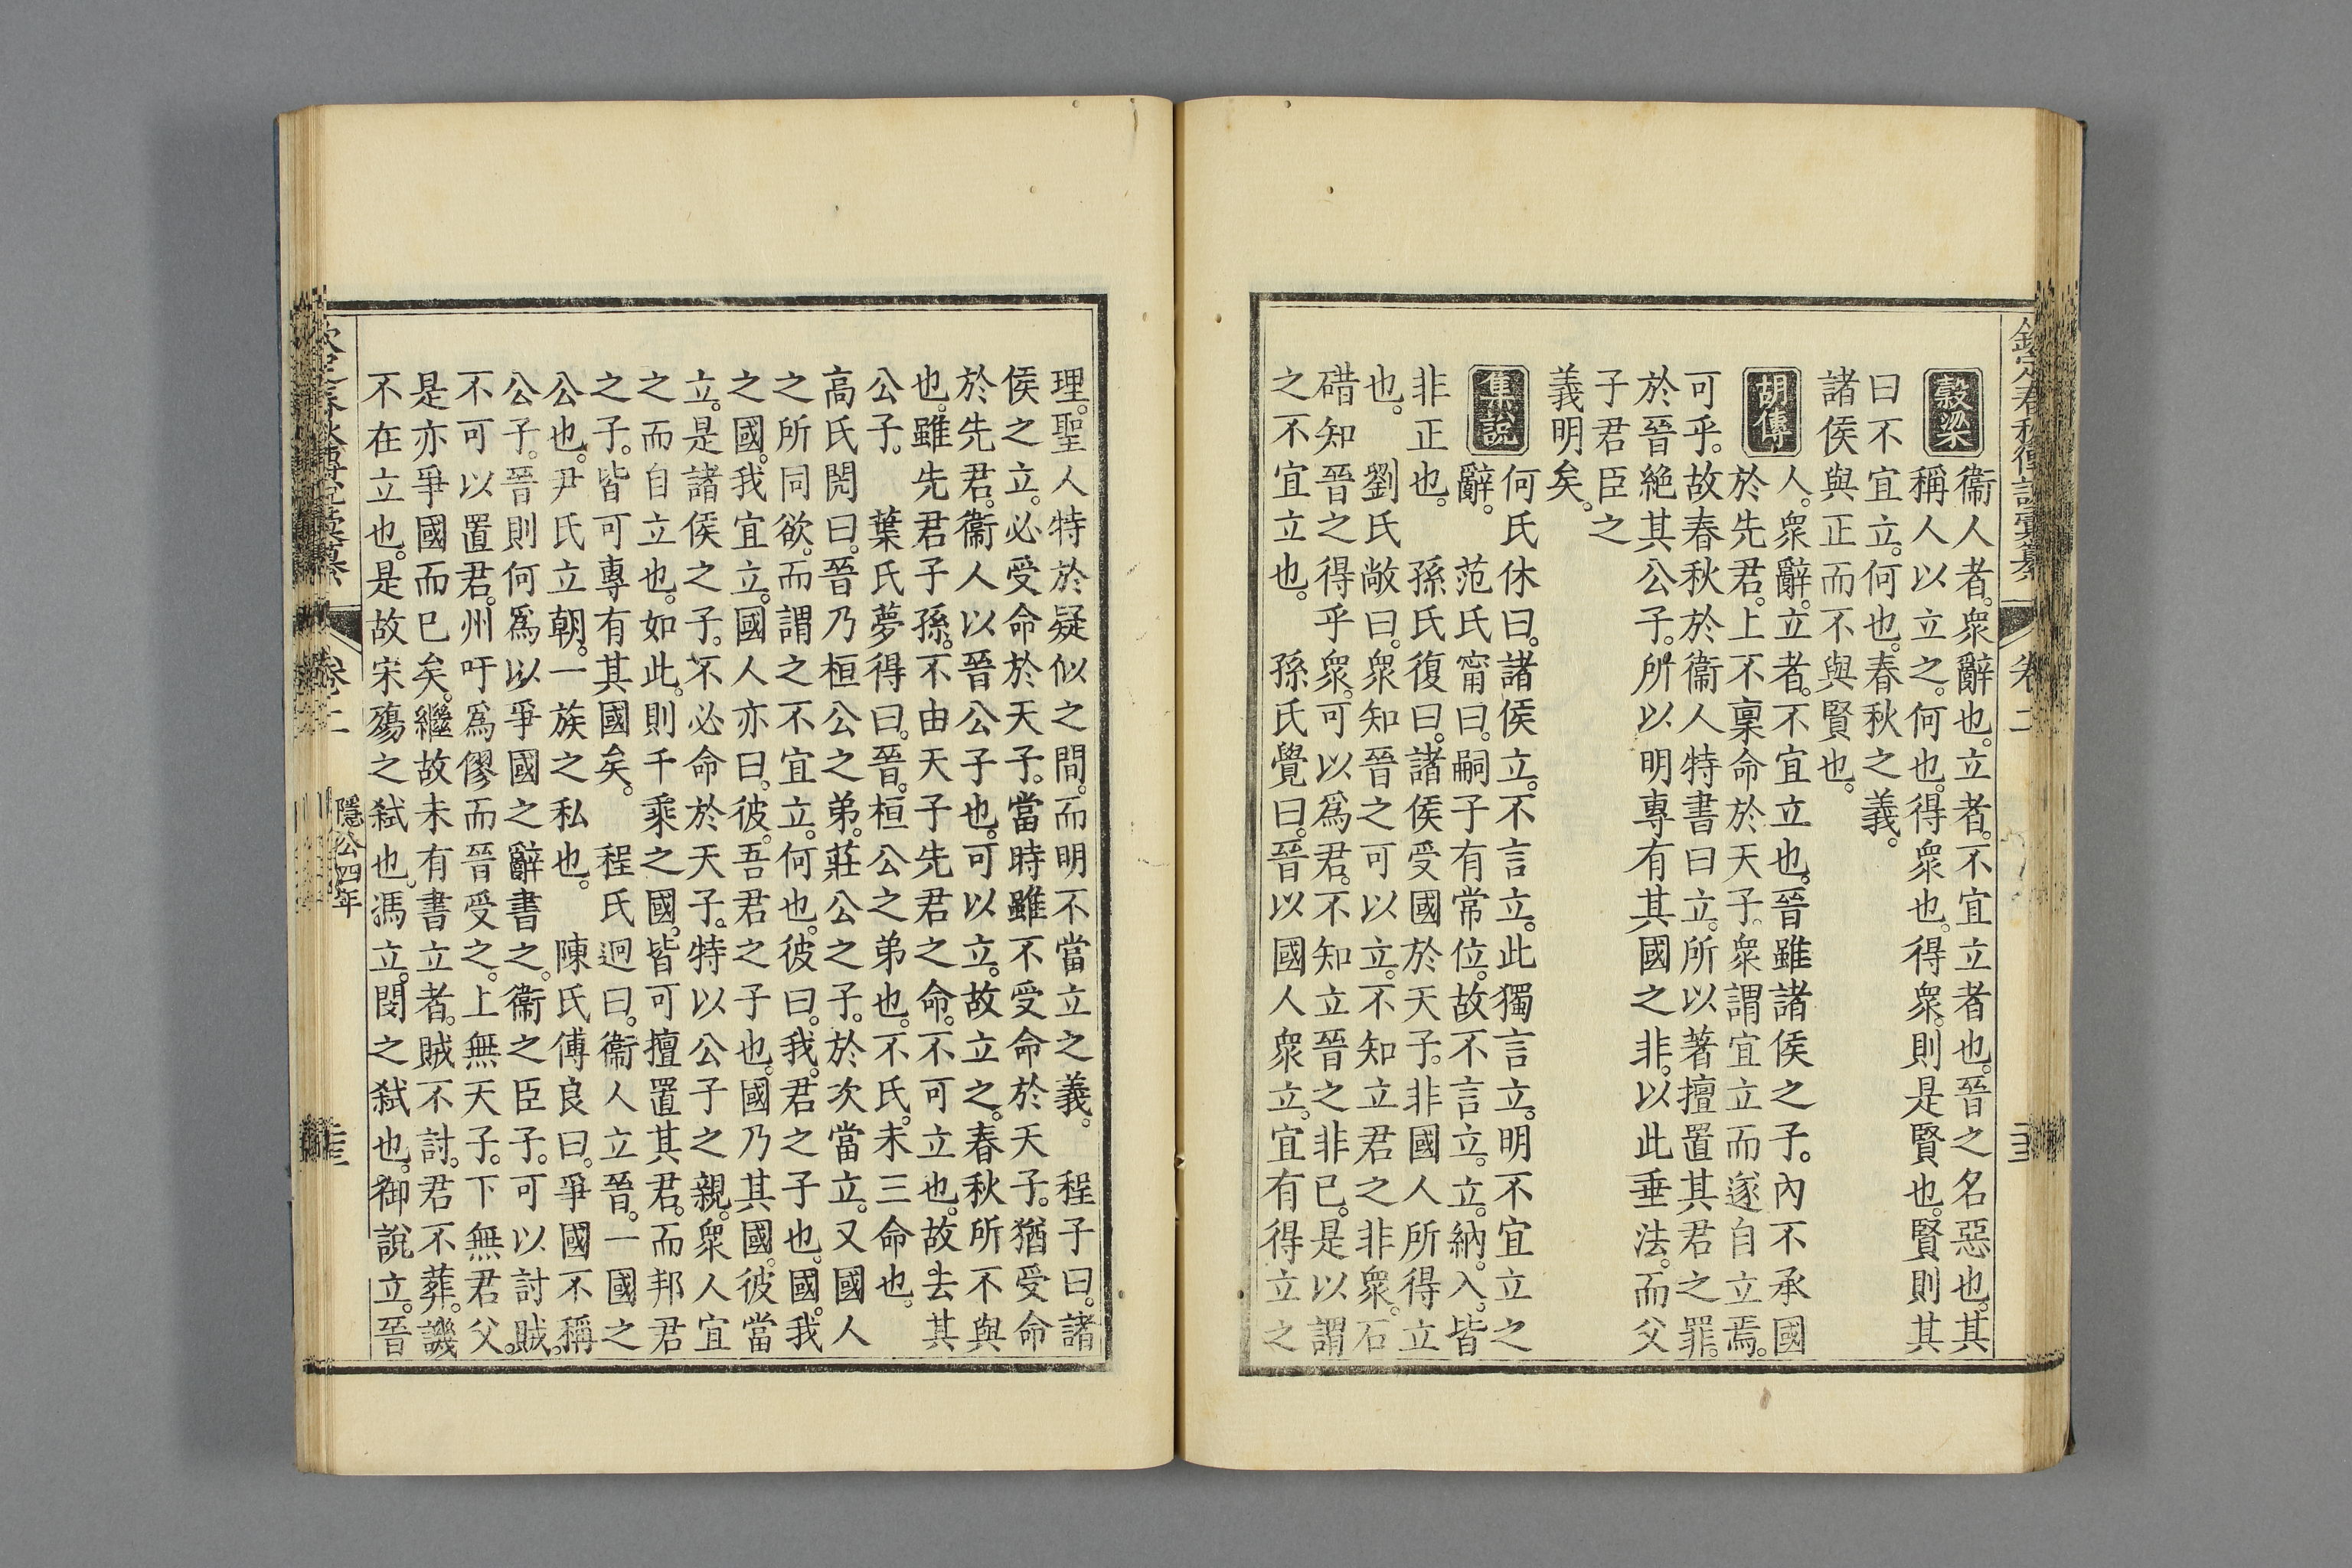 欽定春秋傳說彙纂
卷二
穀梁
衞人者。衆辭也。立者。不宜立者也。晉之名惡也。其
稱人以立之。何也。得衆也。得衆。則是賢也。賢則其
曰不宜立。何也。春秋之義。
諸侯與正而不與賢也。
胡傳
人。衆辭。立者。不宜立也。晉雖諸侯之子。內不承國
於先君。上不稟命於天子。衆謂宜立而遂自立焉。
可乎。故春秋於衞人特書曰立。所以著擅置其君之罪。
於晉絶其公子。所以明專有其國之非。以此垂法。而父
子君臣之
義明矣。
集說
何氏休曰。諸侯立。不言立。此獨言立。明不宜立之
辭。 范氏甯曰。嗣子有常位。故不言立。立。納。入。皆
非正也。 孫氏復曰。諸侯受國於天子。非國人所得立
也。 劉氏敞曰。衆知晉之可以立。不知立君之非衆。石
碏知晉之得乎衆。可以爲君。不知立晉之非已。是以謂
之不宜立也。 孫氏覺曰。晉以國人衆立。宜有得立之
理。聖人特於疑似之間。而明不當立之義。 程子曰。諸
侯之立。必受命於天子。當時雖不受命於天子。猶受命
於先君。衞人以晉公子也。可以立。故立之。春秋所不與
也。雖先君子孫。不由天子先君之命。不可立也。故去其
公子。 葉氏夢得曰。晉。桓公之弟也。不氏。未三命也。
高氏閌曰。晉乃桓公之弟。莊公之子。於次當立。又國人
之所同欲。而謂之不宜立。何也。彼曰。我君之子也。國。我
之國。我宜立。國人亦曰。彼。吾君之子也。國乃其國。彼當
立。是諸侯之子。不必命於天子。特以公子之親。衆人宜
之而自立也。如此。則千乘之國。皆可擅置其君。而邦君
之子。皆可專有其國矣。 程氏迥曰。衞人立晉。一國之
公也。尹氏立朝。一族之私也。 陳氏傅良曰。爭國不稱
公子。晉則何爲以爭國之辭書之。衞之臣子。可以討賊。
不可以置君。州吁爲僇而晉受之。上無天子。下無君父。
是亦爭國而已矣。繼故未有書立者。賊不討。君不葬。譏
不在立也。是故宋殤之弒也。馮立。閔之弒也。御說立。晉
卷二
隱公四年